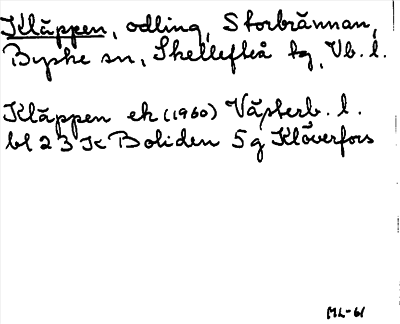 Kläppen, odling, Storbrännan,
Byske sn, Skellefteå tg, Vb. l.
Kläppen ek (1960) Västerb. l.
bl 23 K Boliden 5 g Klöverfors
ML-61